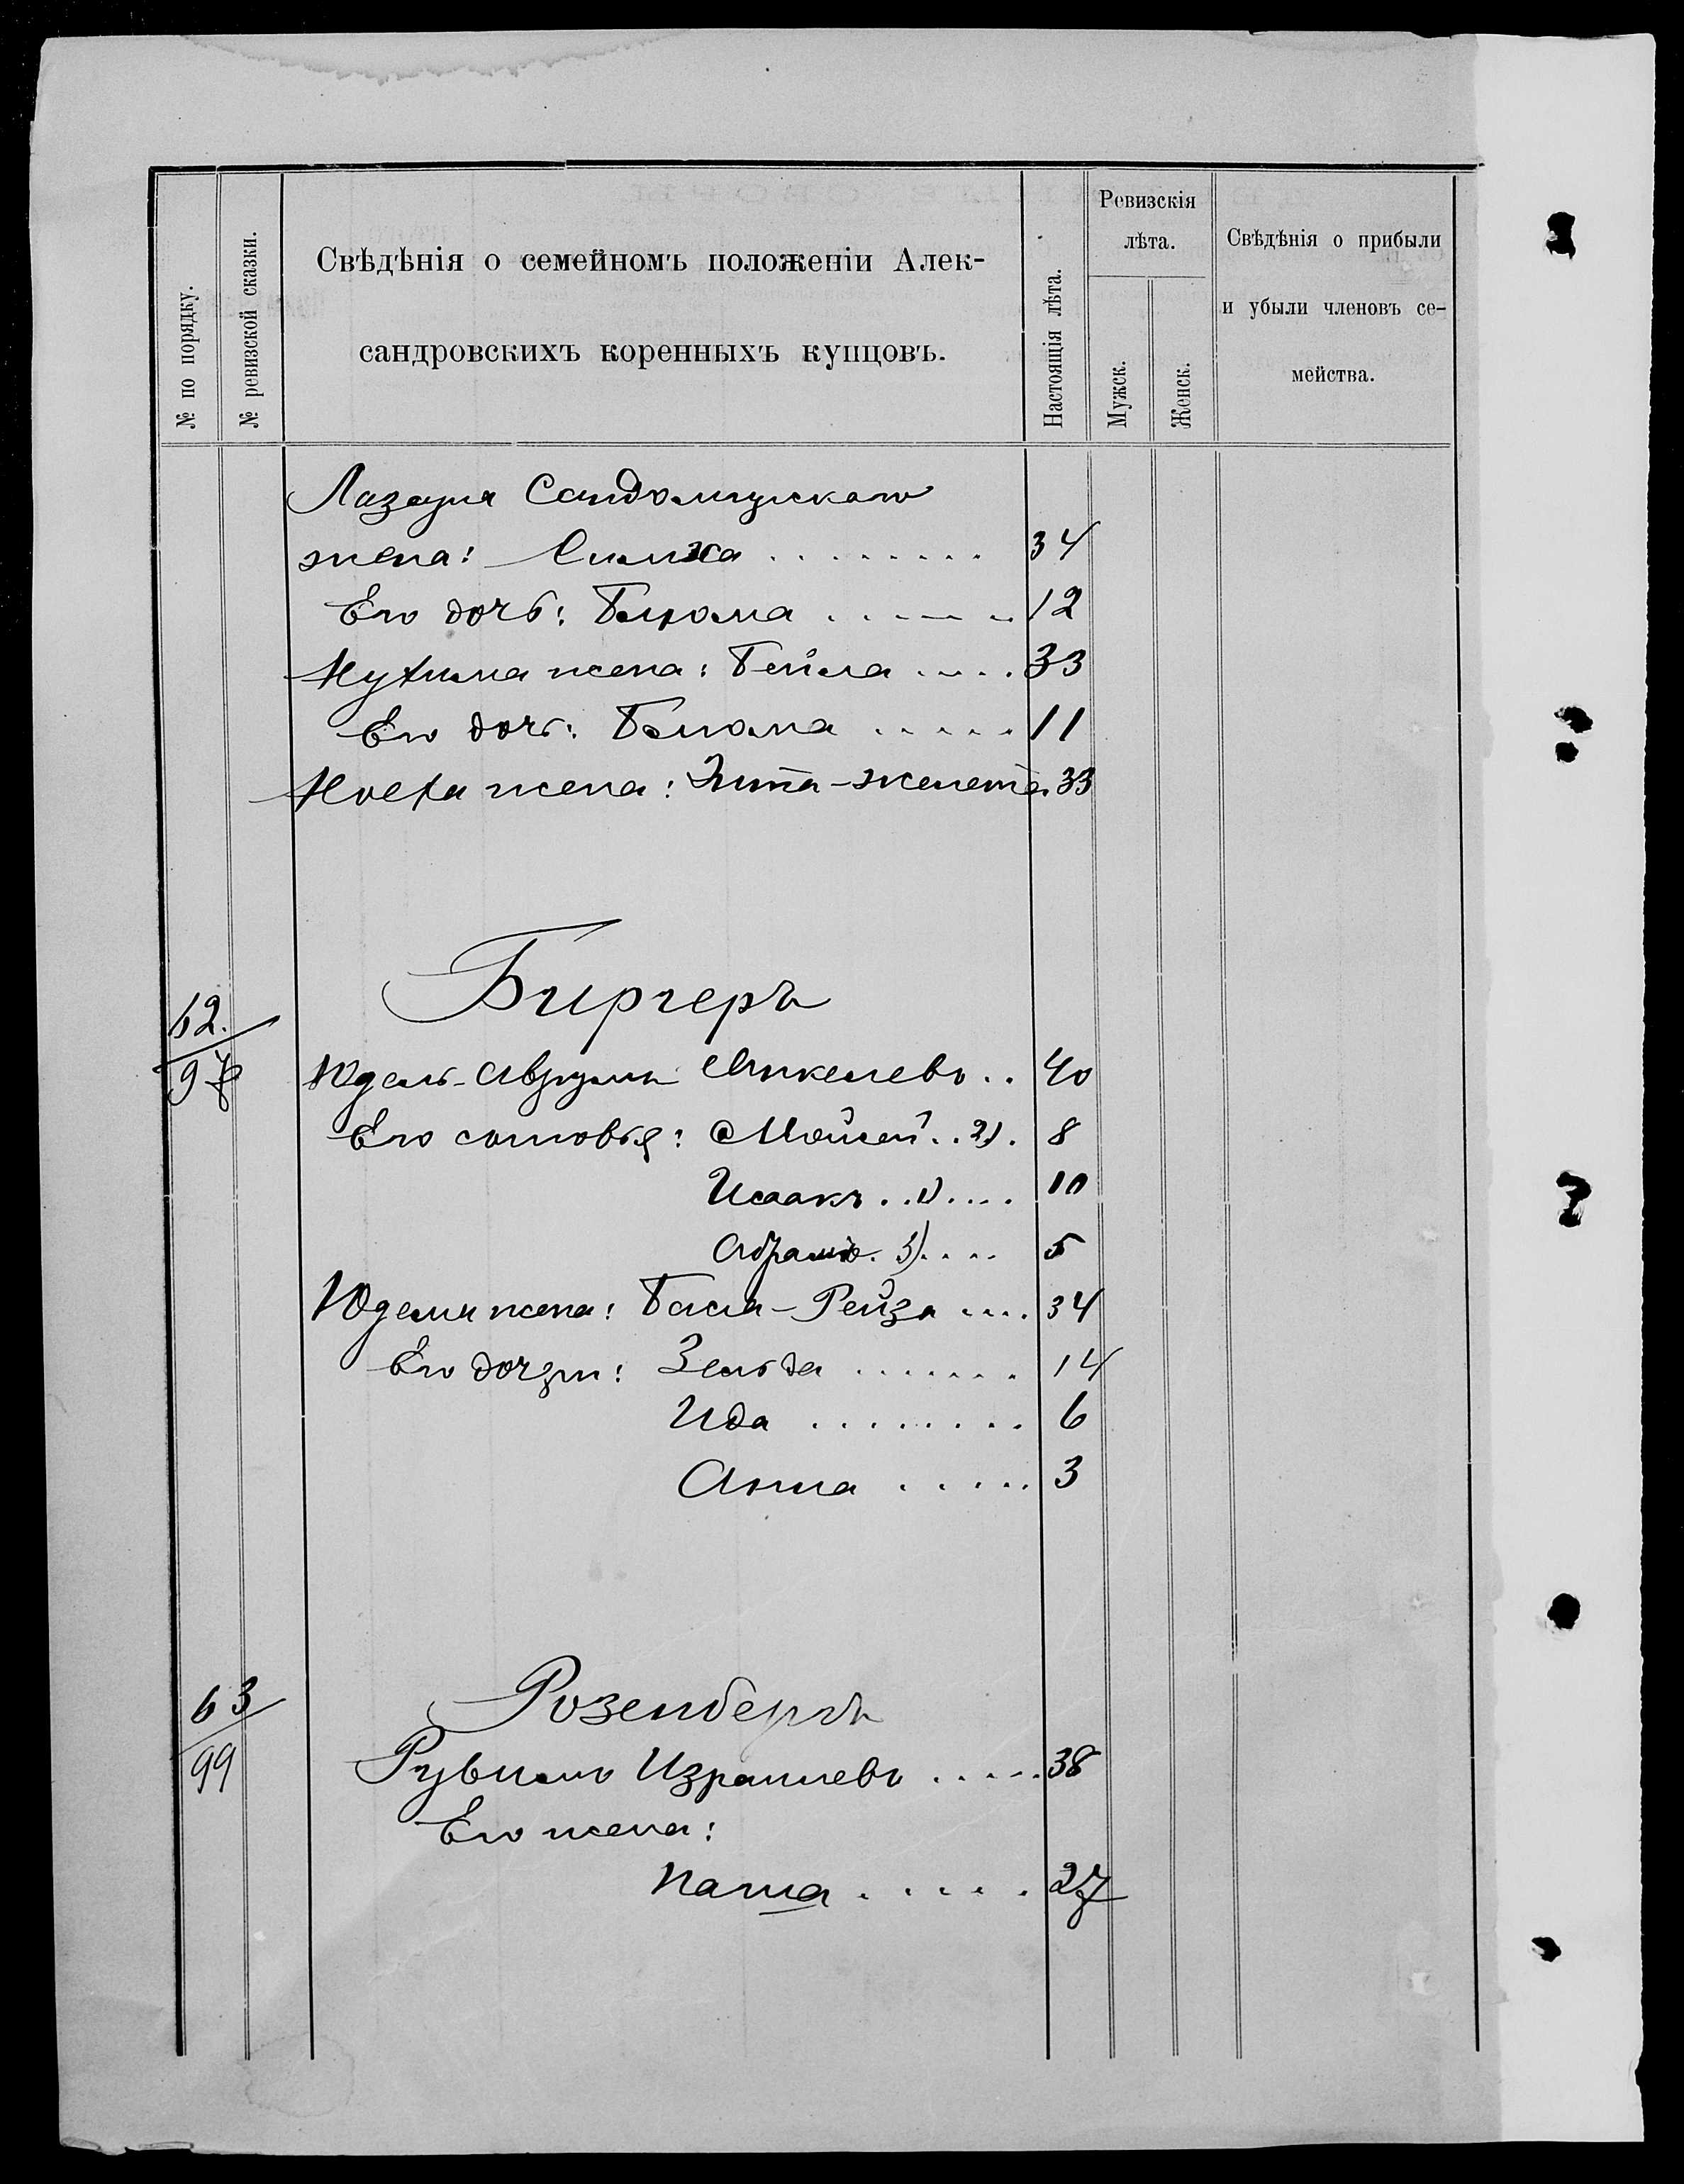 № по порядку.
№ ревизской сказки.
Свѣдѣнія о семейномъ положеніи Алек-
сандровскихъ коренныхъ купцовъ.
Настоящія лѣта.
Ревизскія
лѣта.
Мужск.
Женск.
Свѣдѣнія о прибыли
и убыли членовъ се-
мейства.
Лазаря Сандомирскаго
жена: Симха . . . . . . . . . 34
Его дочь: Блюма . . . . . . 12
Нухима жена: Бейла . . . . 33
Его дочь: Блюма . . . . . 11
жена: Эта-Женета 33
Биргеръ
62.
97
Юдель-Аврумъ . . 40
Его сыновья: Мойсей . . 2) . 8
Исаакъ . . 1) . . . . 10
Абрамъ . 3) . . . . 5
Юделя жена: Бася-Рейза . . . . 34
Его дочери: Зельда . . . . . . . 14
Ида . . . . . . . . 6
Анна . . . . . 3
63
99
Розенбергъ
Рувимъ Израилевъ . . . . . 38
Его жена:
Паша . . . . . 27